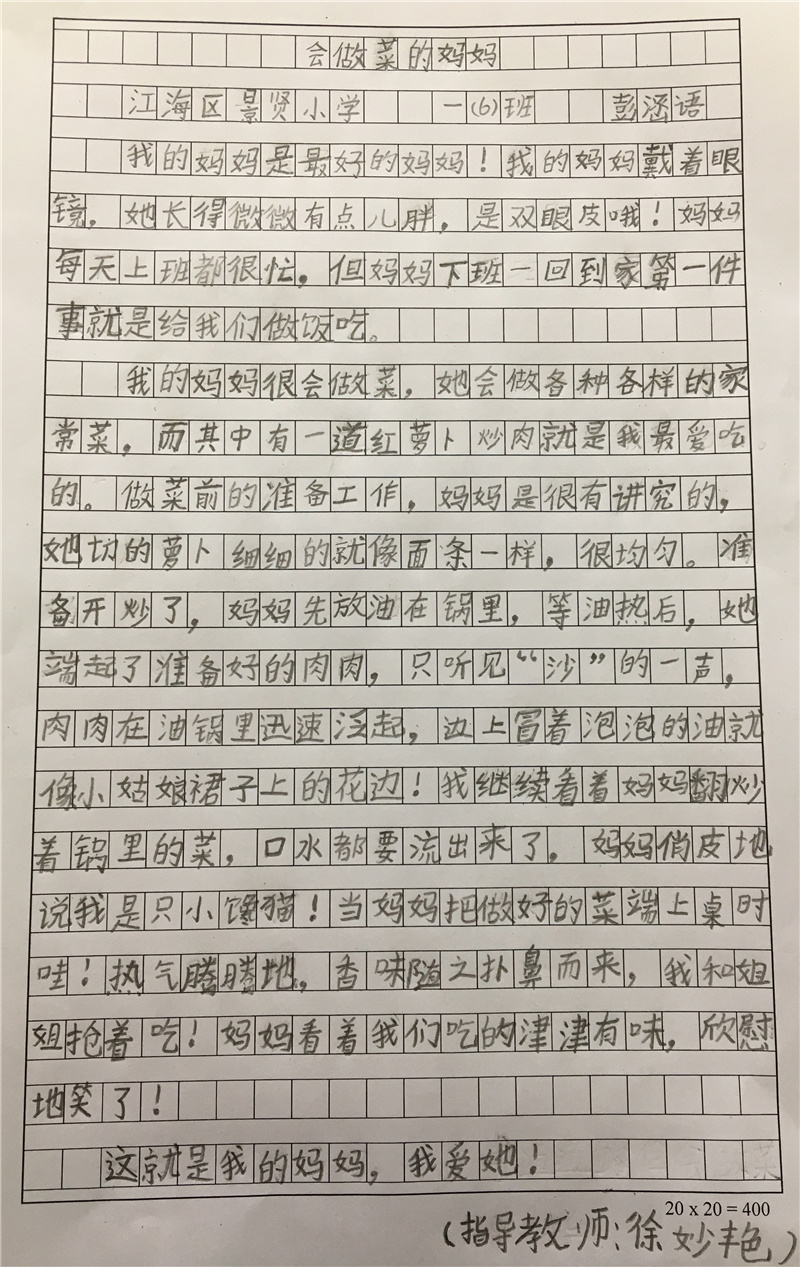 会做菜的妈妈
江海区景贤小学 一(6)班 彭涵语
我的妈妈是最好的妈妈！我的妈妈戴着眼
镜，她长得微微有点儿胖，是双眼皮哦！妈妈
每天上班都很忙，但妈妈下班一回到家第一件
事就是给我们做饭吃。
我的妈妈很会做菜，她会做各种各样的家
常菜，而其中有一道红萝卜炒肉就是我最爱吃
的。做菜前的准备工作，妈妈是很有讲究的，
她切的萝卜细细的就像面条一样，很均匀。准
备开炒了，妈妈先放油在锅里，等油热后，她
端起了准备好的肉肉，只听见“沙”的一声，
肉肉在油锅里迅速泛起，边上冒着泡泡的油就
像小姑娘裙子上的花边！我继续看着妈妈翻炒
着锅里的菜，口水都要流出来了，妈妈俏皮地
说我是只小馋猫！当妈妈把做好的菜端上桌时
哇！热气腾腾地，香味随之扑鼻而来，我和姐
姐抢着吃！妈妈看着我们吃的津津有味，欣慰
地笑了！
这就是我的妈妈，我爱她！
20 x 20 = 400
（指导教师：徐妙艳）